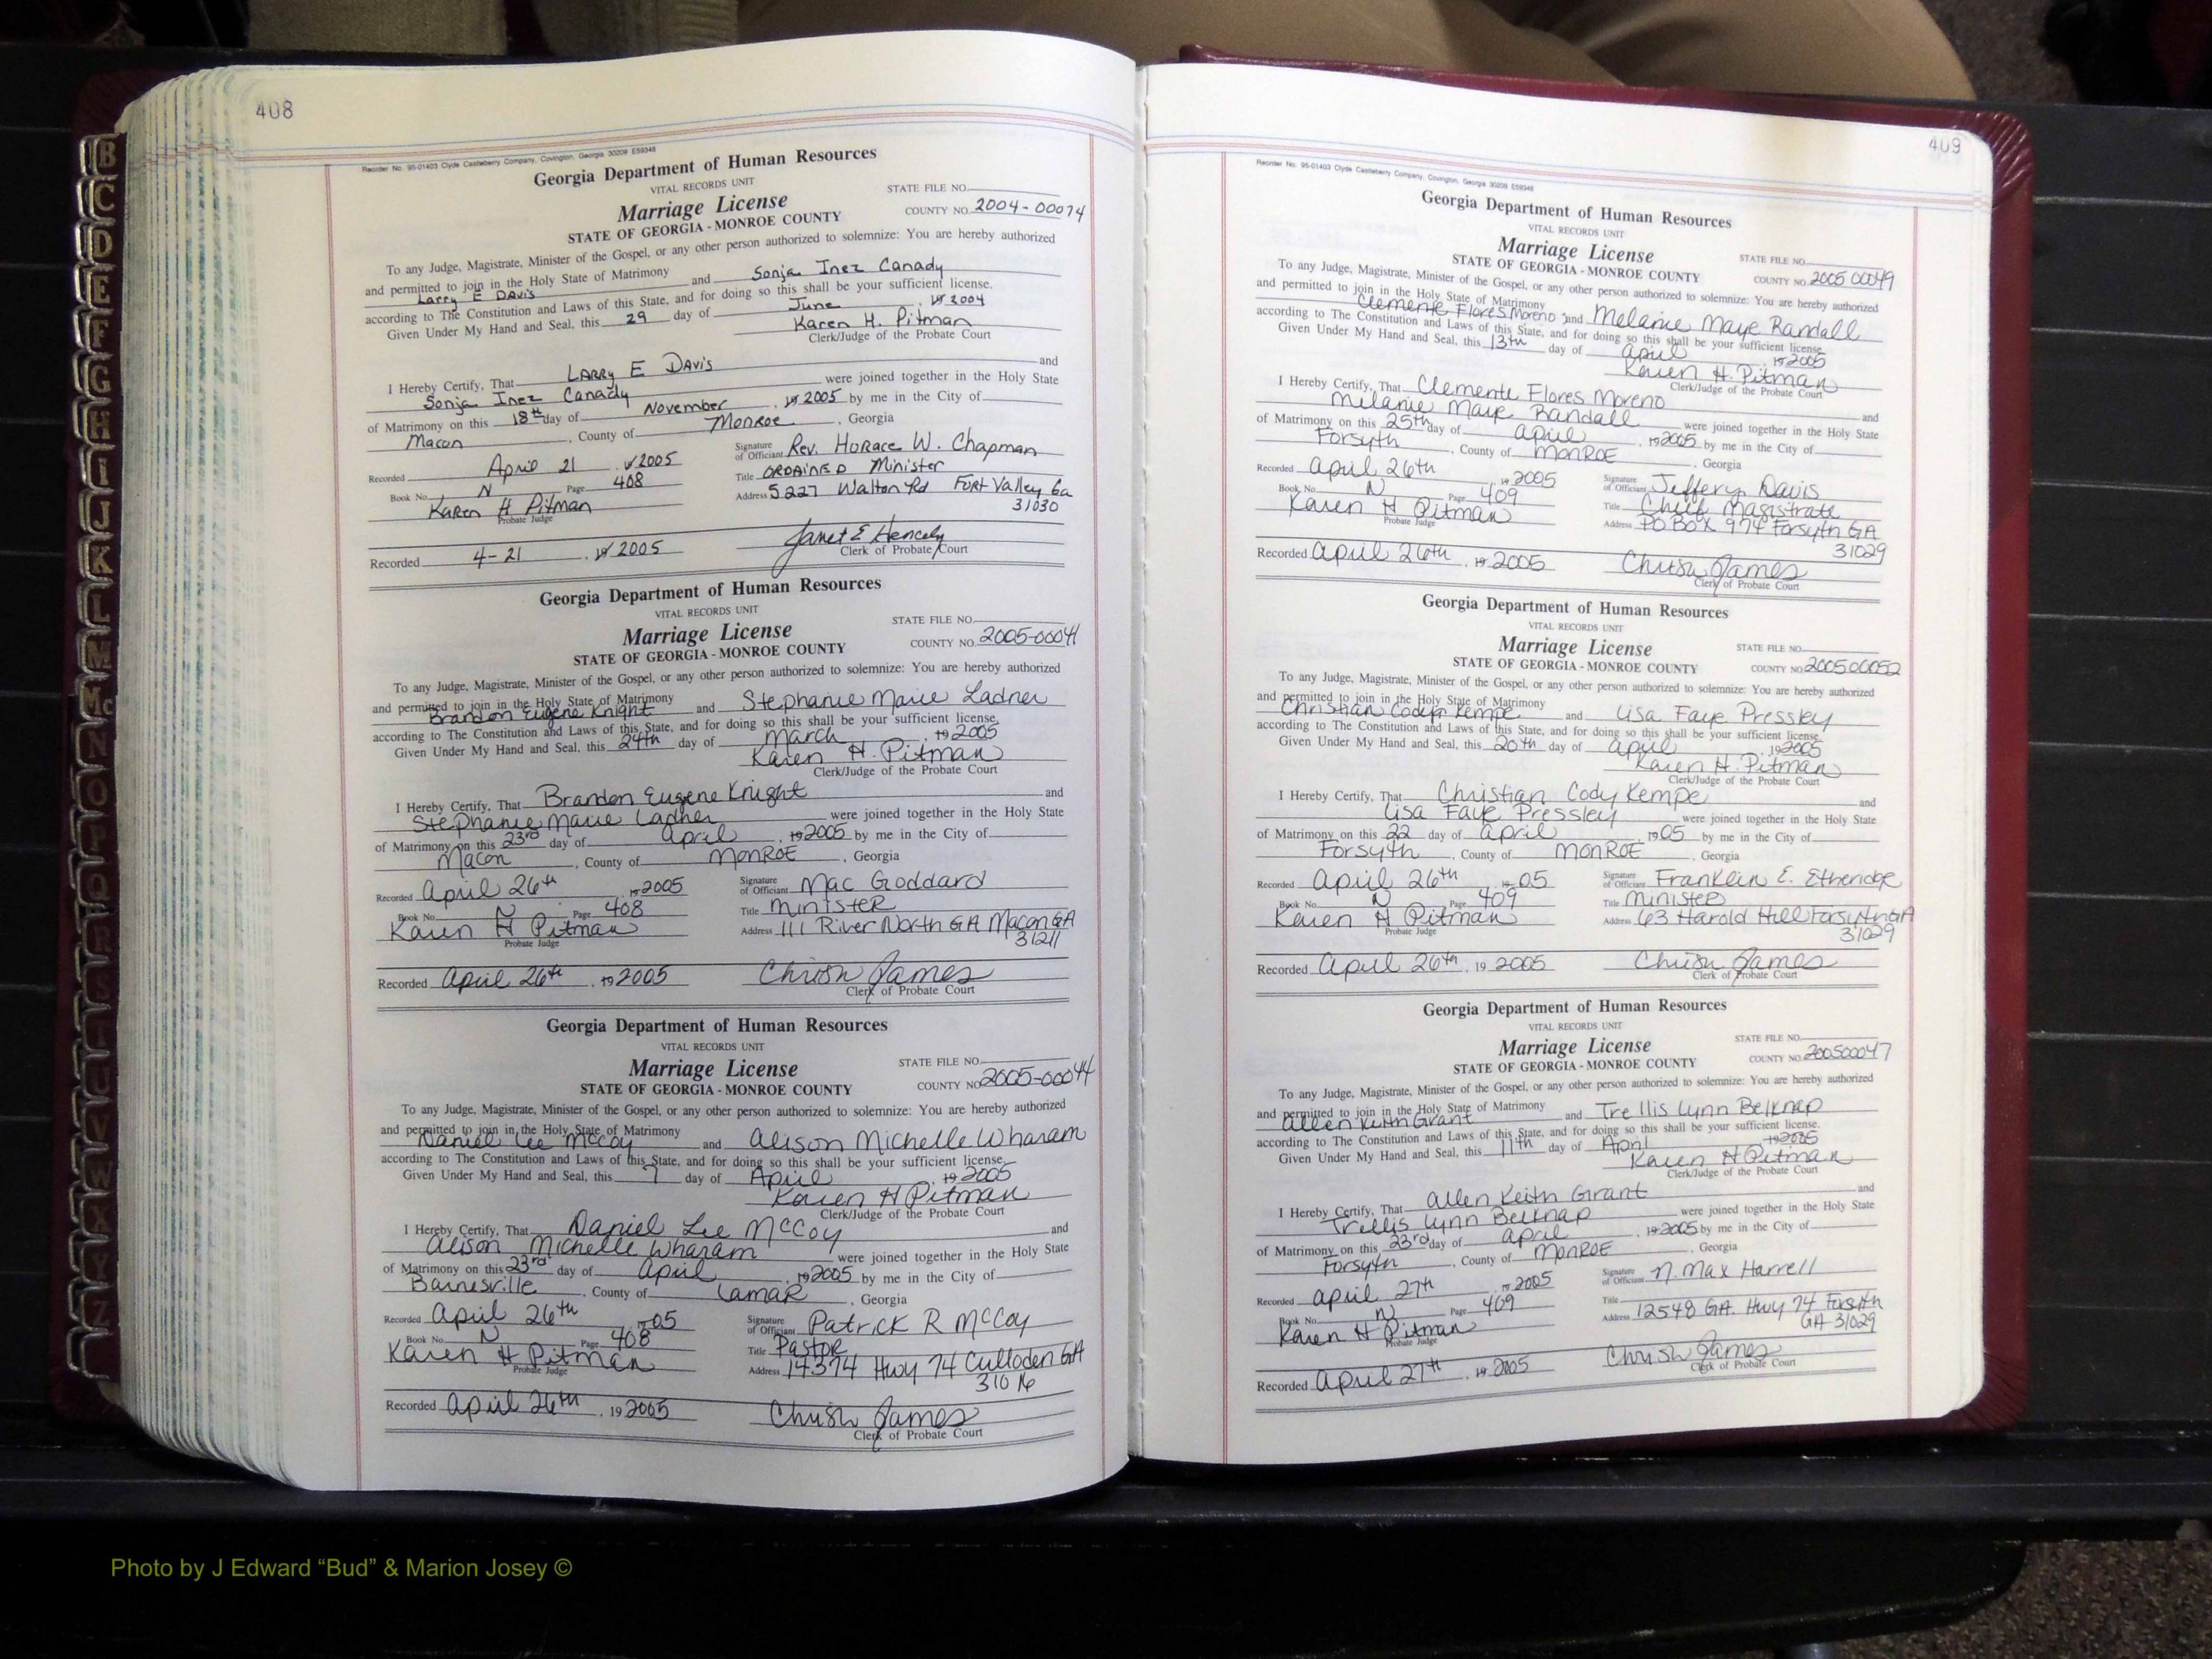 408
Reorder No. 95-01403 Clyde Castleberry Company, Covington, Georgia 30209 E59348
Georgia Department of Human Resources
VITAL RECORDS UNIT
STATE FILE NO.
Marriage License
COUNTY NO. 2004-00074
STATE OF GEORGIA - MONROE COUNTY
To any Judge, Magistrate, Minister of the Gospel, or any other person authorized to solemnize: You are hereby authorized
and permitted to join in the Holy State of Matrimony
Larry E Davis and Sonja Inez Canady
according to The Constitution and Laws of this State, and for doing so this shall be your sufficient license.
Given Under My Hand and Seal, this 29 day of June, 19 2004
Karen H. Pitman
Clerk/Judge of the Probate Court
I Hereby Certify, That Larry E Davis and
Sonja Inez Canady were joined together in the Holy State
of Matrimony on this 18th day of November, 19 2005 by me in the City of
Macon, County of Monroe, Georgia
Recorded April 21 19 2005
Signature of Officiant Rev. Horace W. Chapman
Book No. N Page 408
Title ORDAINED Minister
Karen H Pitman
Probate Judge
Address 5227 Walton Rd Fort Valley Ga
31030
Recorded 4-21, 19 2005
Janet E Hencely
Clerk of Probate Court
Georgia Department of Human Resources
VITAL RECORDS UNIT
STATE FILE NO.
Marriage License
COUNTY NO. 2005-00041
STATE OF GEORGIA - MONROE COUNTY
To any Judge, Magistrate, Minister of the Gospel, or any other person authorized to solemnize: You are hereby authorized
and permitted to join in the Holy State of Matrimony
Brandon Eugene Knight and Stephanie Marie Ladner
according to The Constitution and Laws of this State, and for doing so this shall be your sufficient license.
Given Under My Hand and Seal, this 24th day of March, 19 2005
Karen H. Pitman
Clerk/Judge of the Probate Court
I Hereby Certify, That Brandon Eugene Knight and
Stephanie Marie Ladner were joined together in the Holy State
of Matrimony on this 23rd day of April, 19 2005 by me in the City of
Macon, County of MONROE, Georgia
Recorded April 26th, 19 2005
Signature of Officiant Mac Goddard
Book No. N Page 408
Title MINISTER
Karen H Pitman
Probate Judge
Address 111 River North GA Macon GA
31211
Recorded April 26th, 19 2005
Chrish James
Clerk of Probate Court
Georgia Department of Human Resources
VITAL RECORDS UNIT
STATE FILE NO.
Marriage License
COUNTY NO. 2005-00044
STATE OF GEORGIA - MONROE COUNTY
To any Judge, Magistrate, Minister of the Gospel, or any other person authorized to solemnize: You are hereby authorized
and permitted to join in the Holy State of Matrimony
Daniel Lee McCoy and Alison Michelle Wharam
according to The Constitution and Laws of this State, and for doing so this shall be your sufficient license.
Given Under My Hand and Seal, this 7 day of April, 19 2005
Karen H Pitman
Clerk/Judge of the Probate Court
I Hereby Certify, That Daniel Lee McCoy and
Alison Michelle Wharam were joined together in the Holy State
of Matrimony on this 23rd day of April, 19 2005 by me in the City of
Barnesville, County of Lamar, Georgia
Recorded April 26th, 19 05
Signature of Officiant Patrick R McCoy
Book No. N Page 408
Title Pastor
Karen H Pitman
Probate Judge
Address 14374 Hwy 74 Culloden GA
31016
Recorded April 26th, 19 2005
Chrish James
Clerk of Probate Court
409
Reorder No. 95-01403 Clyde Castleberry Company, Covington, Georgia 30209 E59348
Georgia Department of Human Resources
VITAL RECORDS UNIT
Marriage License
STATE FILE NO.
STATE OF GEORGIA - MONROE COUNTY
COUNTY NO. 2005 00049
To any Judge, Magistrate, Minister of the Gospel, or any other person authorized to solemnize: You are hereby authorized
and permitted to join in the Holy State of Matrimony
Clemente Flores Moreno and Melanie Maye Randall
according to The Constitution and Laws of this State, and for doing so this shall be your sufficient license.
Given Under My Hand and Seal, this 13th day of April, 19 2005
Karen H. Pitman
Clerk/Judge of the Probate Court
I Hereby Certify, That Clemente Flores Moreno and
Melanie Maye Randall were joined together in the Holy State
of Matrimony on this 25th day of April, 19 2005 by me in the City of
Forsyth, County of MONROE, Georgia
Recorded April 26th, 19 2005
Signature of Officiant Jeffery Davis
Book No. N Page 409
Title Chief Magistrate
Karen H Pitman
Probate Judge
Address PO BOX 974 Forsyth GA
31029
Recorded April 26th, 19 2005
Chrish James
Clerk of Probate Court
Georgia Department of Human Resources
VITAL RECORDS UNIT
Marriage License
STATE FILE NO.
STATE OF GEORGIA - MONROE COUNTY
COUNTY NO. 200500052
To any Judge, Magistrate, Minister of the Gospel, or any other person authorized to solemnize: You are hereby authorized
and permitted to join in the Holy State of Matrimony
Christian Cody Kempe and Lisa Faye Pressley
according to The Constitution and Laws of this State, and for doing so this shall be your sufficient license.
Given Under My Hand and Seal, this 20th day of April, 19 2005
Karen H. Pitman
Clerk/Judge of the Probate Court
I Hereby Certify, That Christian Cody Kempe and
Lisa Faye Pressley were joined together in the Holy State
of Matrimony on this 22 day of April, 19 05 by me in the City of
Forsyth, County of MONROE, Georgia
Recorded April 26th, 19 05
Signature of Officiant Franklin E. Etheridge
Book No. N Page 409
Title Minister
Karen H Pitman
Probate Judge
Address 63 Harold Hill Forsyth GA
31029
Recorded April 26th, 19 2005
Chrish James
Clerk of Probate Court
Georgia Department of Human Resources
VITAL RECORDS UNIT
Marriage License
STATE FILE NO.
STATE OF GEORGIA - MONROE COUNTY
COUNTY NO. 200500047
To any Judge, Magistrate, Minister of the Gospel, or any other person authorized to solemnize: You are hereby authorized
and permitted to join in the Holy State of Matrimony
Allen Keith Grant and Trellis Lynn Belknap
according to The Constitution and Laws of this State, and for doing so this shall be your sufficient license.
Given Under My Hand and Seal, this 11th day of April, 19 2005
Karen H Pitman
Clerk/Judge of the Probate Court
I Hereby Certify, That Allen Keith Grant and
Trellis Lynn Belknap were joined together in the Holy State
of Matrimony on this 23rd day of April, 19 2005 by me in the City of
Forsyth, County of MONROE, Georgia
Recorded April 27th, 19 2005
Signature of Officiant N. Max Harrell
Book No. N Page 409
Title
Karen H Pitman
Probate Judge
Address 12548 GA. Hwy 74 Forsyth
GA 31029
Recorded April 27th, 19 2005
Chrish James
Clerk of Probate Court
B
C
D
E
F
G
H
I
J
K
L
M
Mc
N
O
P
Q
R
S
T
U
V
W
X
Y
Z
Photo by J Edward “Bud” & Marion Josey ©